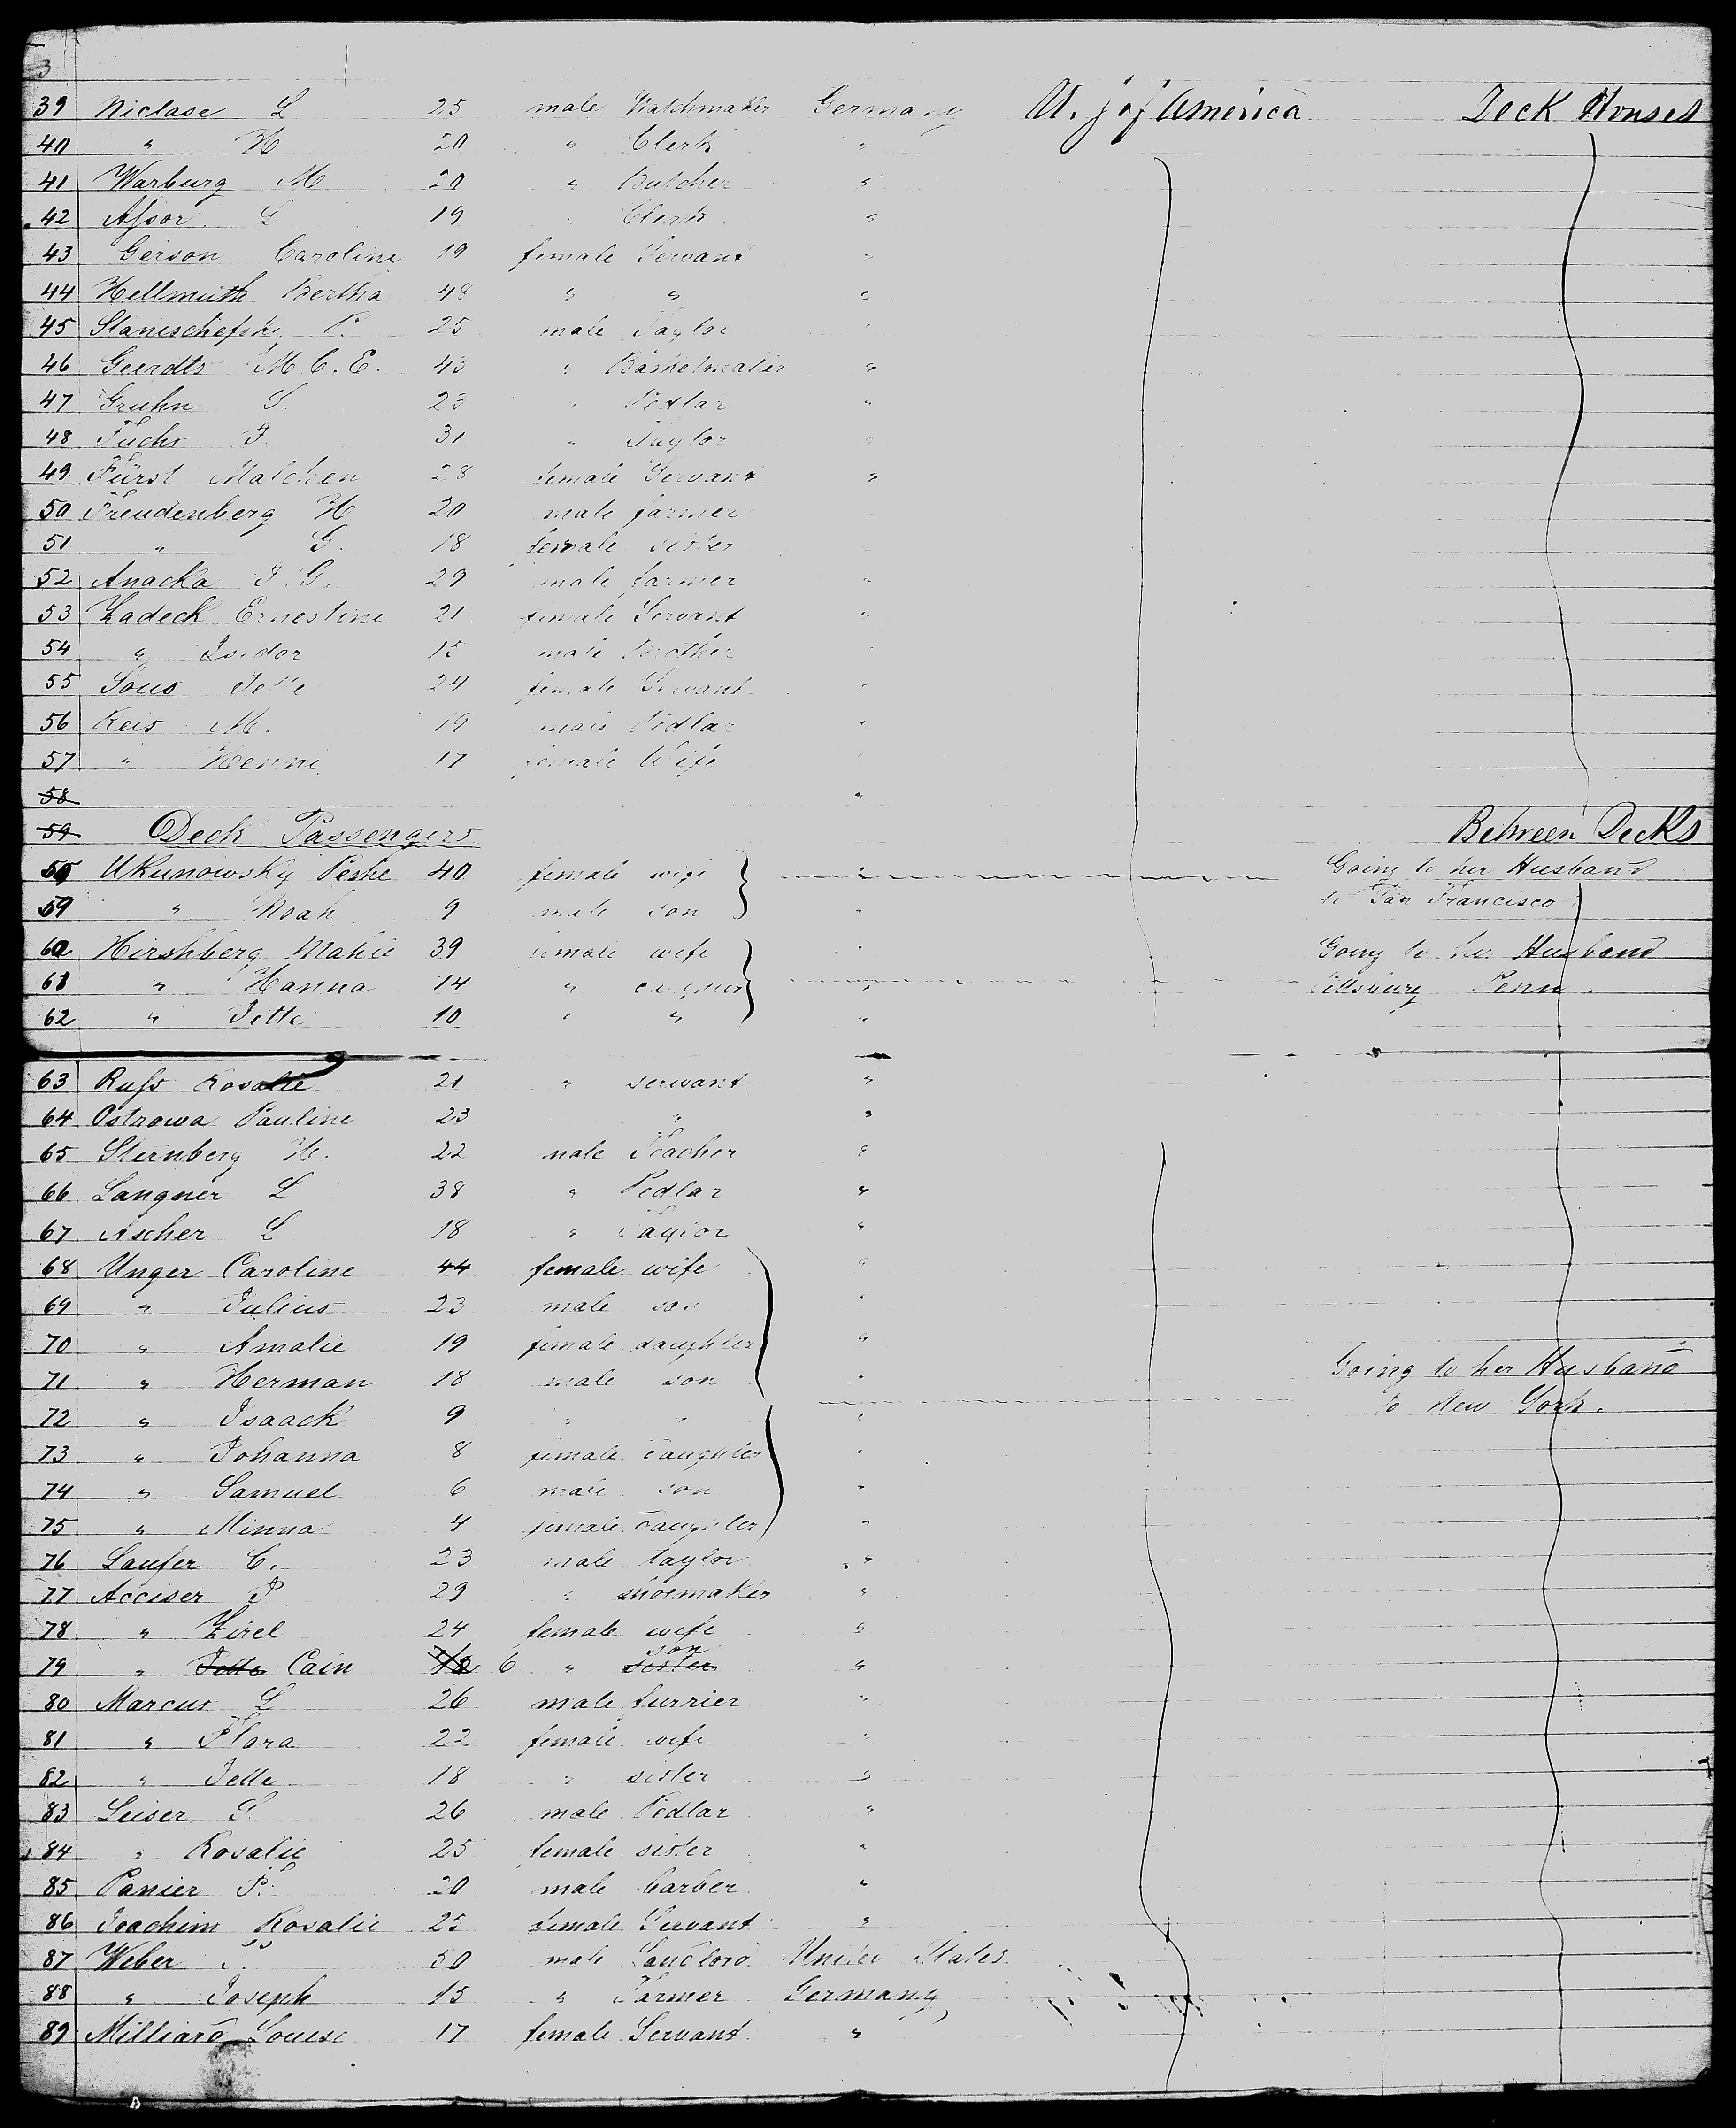 39 Niclase L 25 male Watchmaker Germany U. S of America Deck Houses
40 " H 20 " Clerk "
41 Warburg M 20 " Butcher "
42 Assor L 19 " Clerk "
43 Gerson Caroline 19 female Servant "
44 Hellmuth Bertha 48 " " "
45 25 male Taylor "
46 Geerdts M C. E. 43 " Basketmaker "
47 Gruhn S. 23 " Pedlar "
48 Fuchs J 31 " Taylor "
49 Fürst Malchen 28 female Servant "
50 Freudenberg H 20 male farmer
51 " G. 18 female sister
52 Anacka J. G. 29 male farmer "
53 Zadeck Ernestine 21 female Servant "
54 " Isidor 15 male Brother
55 Jette 24 female Servant "
56 Reis M. 19 male Pedlar "
57 " Henni 17 female Wife
58 "
59 Deck Passengers Between Decks
58 Ukunowsky Peshe 40 female wife " Going to her Husband
59 " Noah 9 male son " to San Francisco
60 Hirshberg Mahle 39 female wife " Going to her Husband
61 " Hanna 14 " " Penn.
62 " Jette 10 " " "
63 Russ Rosalie 21 " servant "
64 Ostrowa Pauline 23 " "
65 Sternberg H. 22 male Teacher "
66 Langner L 38 " Pedlar "
67 Ascher L 18 " Taylor "
68 Unger Caroline 44 female wife "
69 " Julius 23 male son "
70 " Amalie 19 female daughter "
71 " Herman 18 male son " Going to her Husband
72 " Isaack 9 " " " to New York.
73 " Johanna 8 female Daughter "
74 " Samuel 6 male son "
75 " Minna 4 female Daughter "
76 Laufer C. 23 male taylor "
77 Acciser P 29 " shoemaker "
78 " Zirel 24 female wife "
79 " Jette Cain 18 6 " sister son "
80 Marcus L 26 male furrier "
81 " Flora 22 female wife "
82 " Jette 18 " sister "
83 Leiser G. 26 male Pedlar "
84 " Rosalie 25 female sister "
85 Panier P. 20 male barber "
86 Joachim Rosalie 25 female Servant "
87 Weber 50 male Landlord United States
88 " Joseph 15 " Farmer Germany
89 Milliard Louise 17 female Servant "